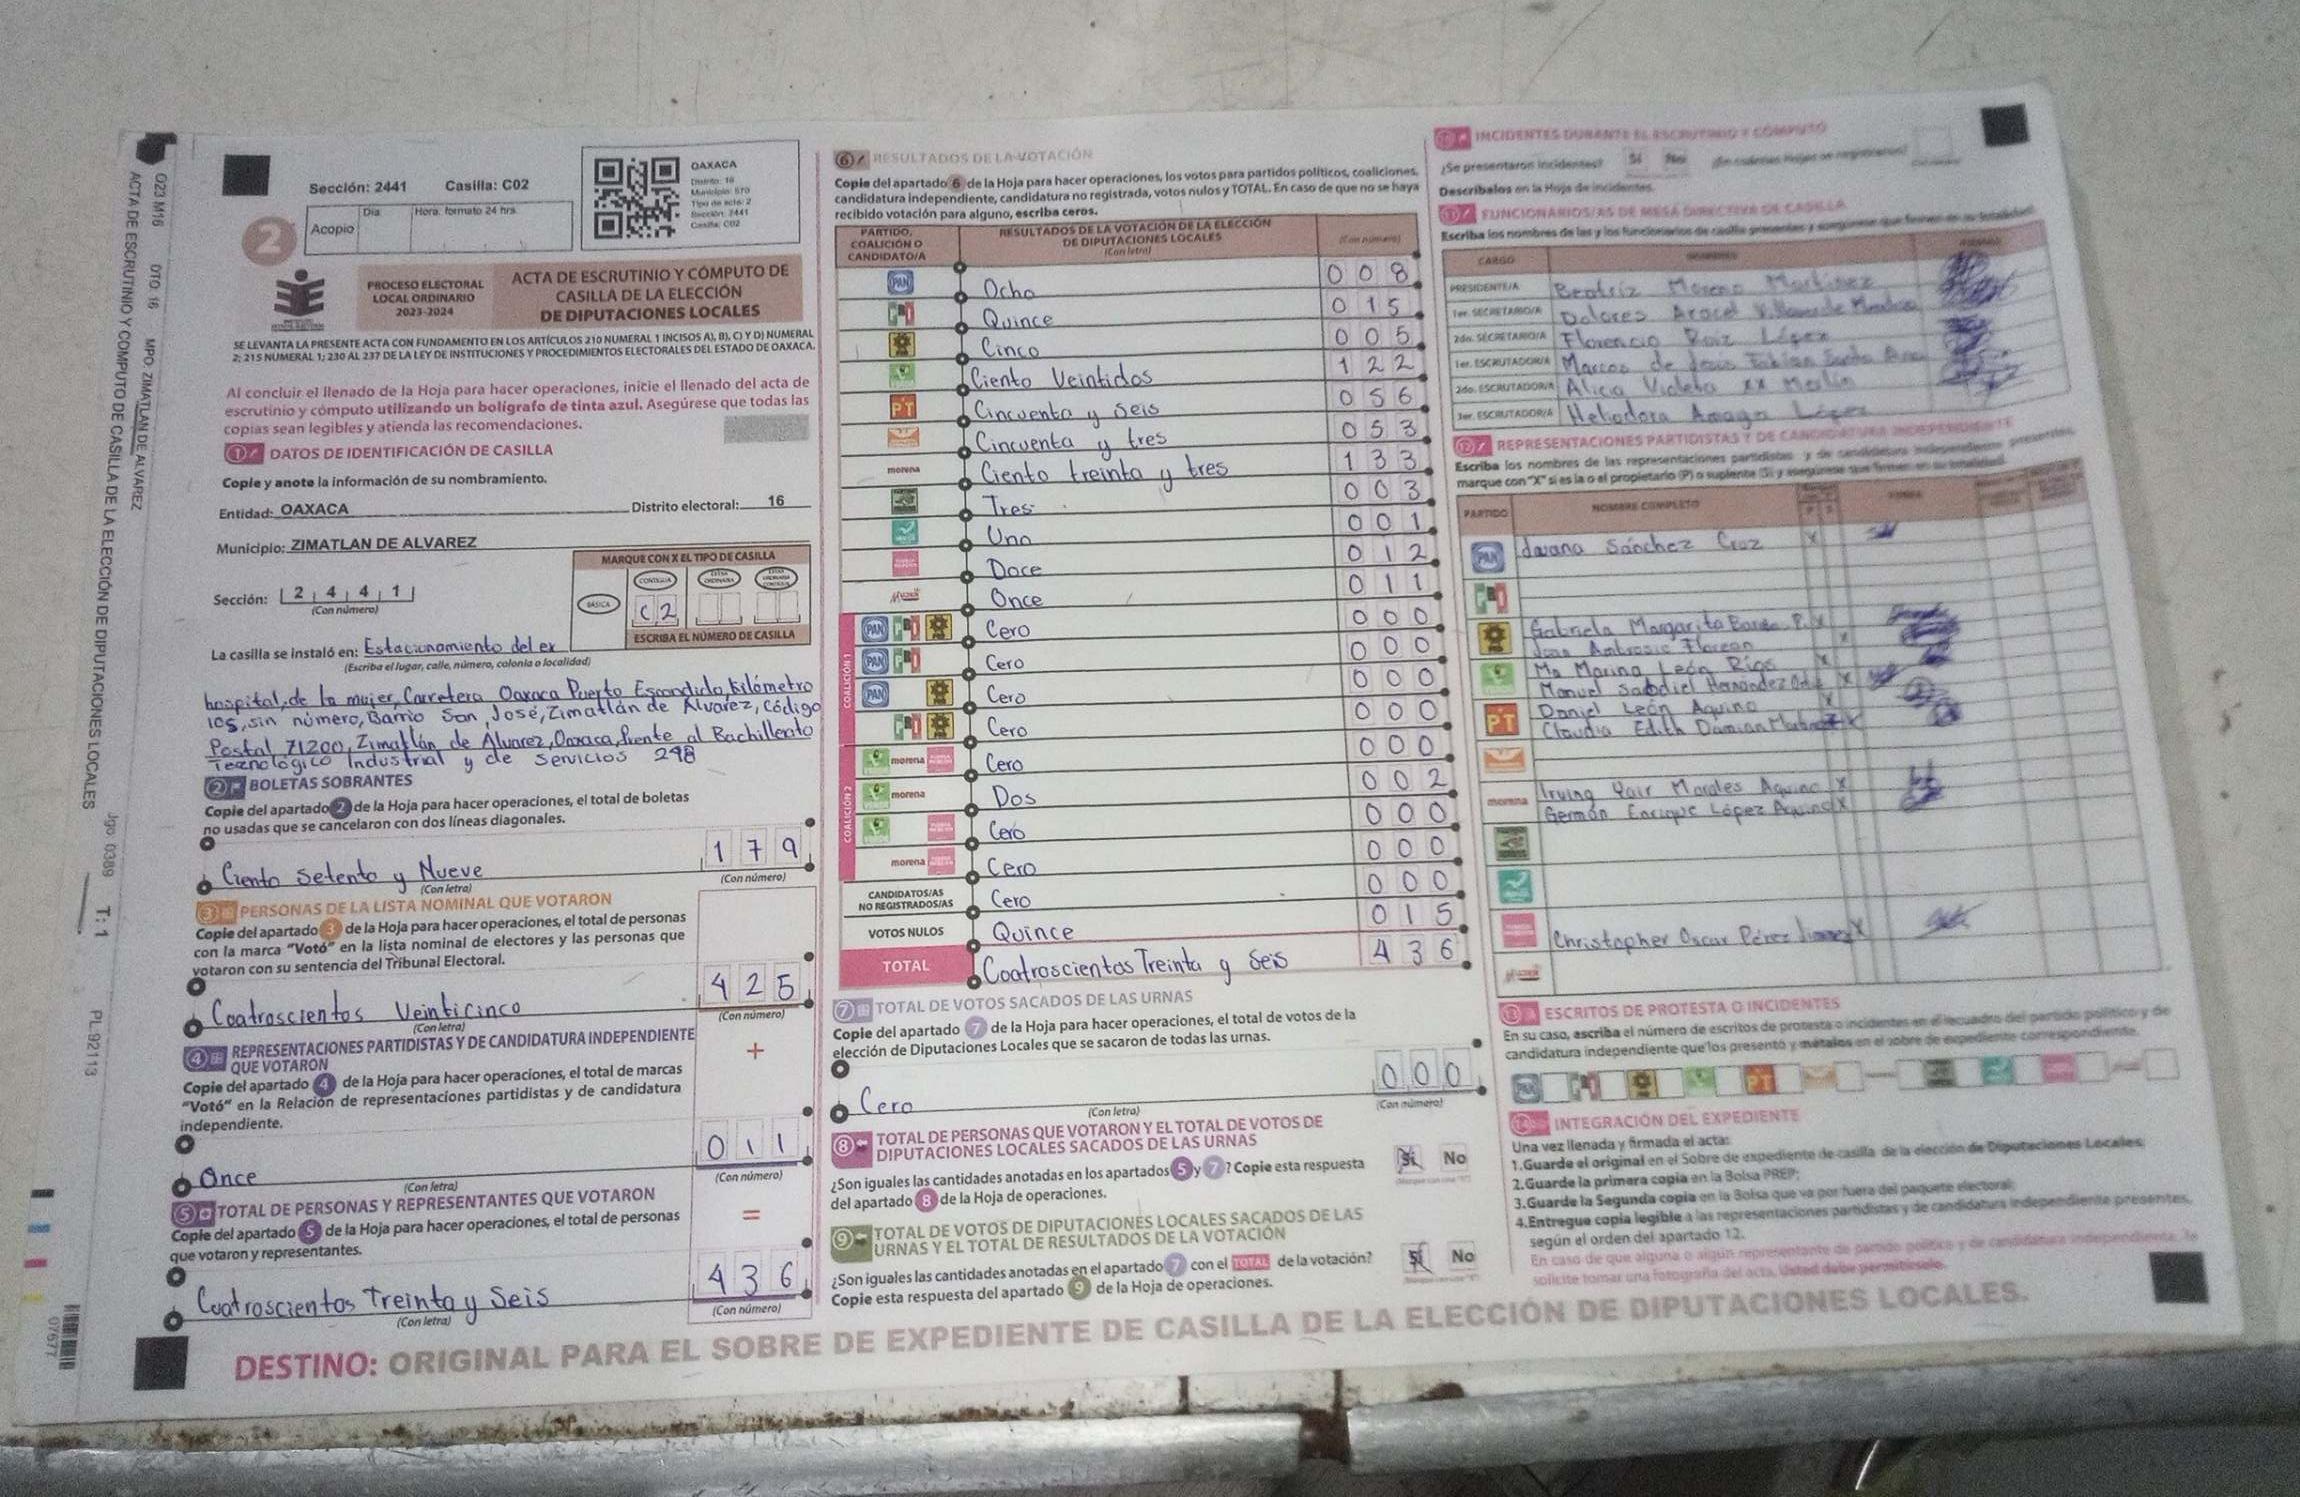 O23 M16 DTO: 16 MPO: ZIMATLAN DE ALVAREZ Jgo: 0389 T: 1 PL:92113
ACTA DE ESCRUTINIO Y CÓMPUTO DE CASILLA DE LA ELECCIÓN DE DIPUTACIONES LOCALES
07677
Sección: 2441 Casilla: C02
2
Acopio Día Hora: formato 24 hrs.
OAXACA
Distrito: 16
Municipio: 570
Tipo de acta: 2
Sección: 2441
Casilla: C02
PROCESO ELECTORAL
LOCAL ORDINARIO
2023-2024
ACTA DE ESCRUTINIO Y CÓMPUTO DE
CASILLA DE LA ELECCIÓN
DE DIPUTACIONES LOCALES
SE LEVANTA LA PRESENTE ACTA CON FUNDAMENTO EN LOS ARTÍCULOS 210 NUMERAL 1 INCISOS A), B), C) Y D) NUMERAL
2; 215 NUMERAL 1; 230 AL 237 DE LA LEY DE INSTITUCIONES Y PROCEDIMIENTOS ELECTORALES DEL ESTADO DE OAXACA.
Al concluir el llenado de la Hoja para hacer operaciones, inicie el llenado del acta de
escrutinio y cómputo utilizando un bolígrafo de tinta azul. Asegúrese que todas las
copias sean legibles y atienda las recomendaciones.
1 DATOS DE IDENTIFICACIÓN DE CASILLA
Copie y anote la información de su nombramiento.
Entidad: OAXACA Distrito electoral: 16
Municipio: ZIMATLAN DE ALVAREZ
MARQUE CON X EL TIPO DE CASILLA
Sección: 2 4 4 1
(Con número)
BÁSICA CONTIGUA
C 2
ESCRIBA EL NÚMERO DE CASILLA
La casilla se instaló en: Estacionamiento del ex
(Escriba el lugar, calle, número, colonia o localidad)
hospital, de la mujer, Carretera Oaxaca Puerto Escondido, kilómetro
105, sin número, Barrio San José, Zimatlán de Álvarez, Código
Postal 71200, Zimatlán de Álvarez, Oaxaca, frente al Bachillerato
Tecnológico Industrial y de Servicios 248
2 BOLETAS SOBRANTES
Copie del apartado 2 de la Hoja para hacer operaciones, el total de boletas
no usadas que se cancelaron con dos líneas diagonales.
Ciento Setenta y Nueve 1 7 9
(Con letra) (Con número)
3 PERSONAS DE LA LISTA NOMINAL QUE VOTARON
Copie del apartado 3 de la Hoja para hacer operaciones, el total de personas
con la marca "Votó" en la lista nominal de electores y las personas que
votaron con su sentencia del Tribunal Electoral.
Coatroscientos Veinticinco 4 2 5
(Con letra) (Con número)
4 REPRESENTACIONES PARTIDISTAS Y DE CANDIDATURA INDEPENDIENTE
QUE VOTARON
+
Copie del apartado 4 de la Hoja para hacer operaciones, el total de marcas
"Votó" en la Relación de representaciones partidistas y de candidatura
independiente.
Once 0 1 1
(Con letra) (Con número)
5 TOTAL DE PERSONAS Y REPRESENTANTES QUE VOTARON
=
Copie del apartado 5 de la Hoja para hacer operaciones, el total de personas
que votaron y representantes.
Cuatroscientos Treinta y Seis 4 3 6
(Con letra) (Con número)
6 RESULTADOS DE LA VOTACIÓN
Copie del apartado 6 de la Hoja para hacer operaciones, los votos para partidos políticos, coaliciones,
candidatura independiente, candidatura no registrada, votos nulos y TOTAL. En caso de que no se haya
recibido votación para alguno, escriba ceros.
PARTIDO, COALICIÓN O CANDIDATO/A
RESULTADOS DE LA VOTACIÓN DE LA ELECCIÓN
DE DIPUTACIONES LOCALES
(Con letra) (Con número)
PAN Ocho 0 0 8
PRI Quince 0 1 5
PRD Cinco 0 0 5
VERDE Ciento Veintidos 1 2 2
PT Cincuenta y Seis 0 5 6
Cincuenta y tres 0 5 3
morena Ciento treinta y tres 1 3 3
Tres 0 0 3
Uno 0 0 1
Doce 0 1 2
Mujer Once 0 1 1
COALICIÓN 1
PAN PRI PRD Cero 0 0 0
PAN PRI Cero 0 0 0
PAN PRD Cero 0 0 0
PRI PRD Cero 0 0 0
COALICIÓN 2
morena Cero 0 0 0
morena Dos 0 0 2
Cero 0 0 0
morena Cero 0 0 0
CANDIDATOS/AS NO REGISTRADOS/AS Cero 0 0 0
VOTOS NULOS Quince 0 1 5
TOTAL Coatroscientos Treinta y Seis 4 3 6
7 TOTAL DE VOTOS SACADOS DE LAS URNAS
Copie del apartado 7 de la Hoja para hacer operaciones, el total de votos de la
elección de Diputaciones Locales que se sacaron de todas las urnas.
Cero 0 0 0
(Con letra) (Con número)
8 TOTAL DE PERSONAS QUE VOTARON Y EL TOTAL DE VOTOS DE
DIPUTACIONES LOCALES SACADOS DE LAS URNAS
¿Son iguales las cantidades anotadas en los apartados 5 y 7? Copie esta respuesta Sí No
del apartado 8 de la Hoja de operaciones.
9 TOTAL DE VOTOS DE DIPUTACIONES LOCALES SACADOS DE LAS
URNAS Y EL TOTAL DE RESULTADOS DE LA VOTACIÓN
¿Son iguales las cantidades anotadas en el apartado 7 con el TOTAL de la votación? Sí No
Copie esta respuesta del apartado 9 de la Hoja de operaciones.
INCIDENTES DURANTE EL ESCRUTINIO Y CÓMPUTO
¿Se presentaron incidentes? Sí No
Descríbalos en la Hoja de incidentes.
FUNCIONARIOS/AS DE MESA DIRECTIVA DE CASILLA
Escriba los nombres de las y los funcionarios de casilla presentes y asegúrese que firmen en su totalidad.
CARGO
PRESIDENTE/A Beatriz Moreno Martinez
1er. SECRETARIO/A Dolores Araceli Villaverde
2do. SECRETARIO/A Florencio Ruiz López
1er. ESCRUTADOR/A Marcos de Jesús Fabian Santa Ana
2do. ESCRUTADOR/A Alicia Violeta xx Martin
3er. ESCRUTADOR/A Heliodora Amaya López
12 REPRESENTACIONES PARTIDISTAS Y DE CANDIDATURA INDEPENDIENTE
Escriba los nombres de las representaciones partidistas y de candidatura independiente presentes,
marque con "X" si es la o el propietario (P) o suplente (S) y asegúrese que firmen en su totalidad.
PARTIDO NOMBRE COMPLETO
PAN Sánchez Cruz X
PRI
PRD Gabriela Margarita X
Ambrosio X
Ma Marina León Rios X
Manuel Hernández X
PT Daniel León Aquino X
Claudia Edith Damian X
morena Irving Yair Morales Aquino X
Germán Enrique López Aquino X
Christopher Oscar Pérez X
13 ESCRITOS DE PROTESTA O INCIDENTES
En su caso, escriba el número de escritos de protesta o incidentes en el recuadro del partido político y de
candidatura independiente que los presentó y métalos en el sobre de expediente correspondiente.
14 INTEGRACIÓN DEL EXPEDIENTE
Una vez llenada y firmada el acta:
1.Guarde el original en el Sobre de expediente de casilla de la elección de Diputaciones Locales;
2.Guarde la primera copia en la Bolsa PREP;
3.Guarde la Segunda copia en la Bolsa que va por fuera del paquete electoral;
4.Entregue copia legible a las representaciones partidistas y de candidatura independiente presentes,
según el orden del apartado 12.
En caso de que alguna o algún representante de partido político y de candidatura independiente, le
solicite tomar una fotografía del acta, Usted debe permitírselo.
DESTINO: ORIGINAL PARA EL SOBRE DE EXPEDIENTE DE CASILLA DE LA ELECCIÓN DE DIPUTACIONES LOCALES.